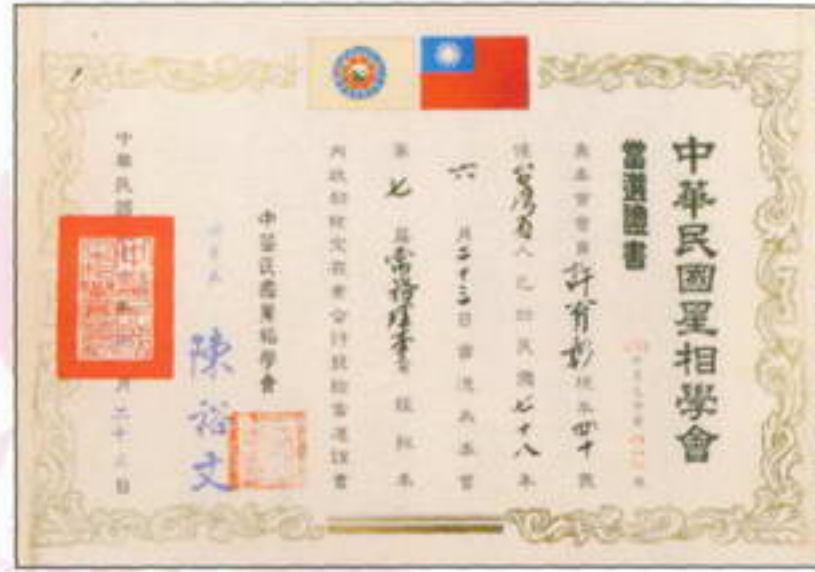 中華民國星相學會
當選證書
茲本會會員許 彰現年四十歲
係台灣省人已於民國七十八年
六月二十三日當選為本會
第七屆常務理事 經報奉
內政部 定在案合行發給當選證書
中華民國星相學會
陳裕文
中華民國 月二十三日